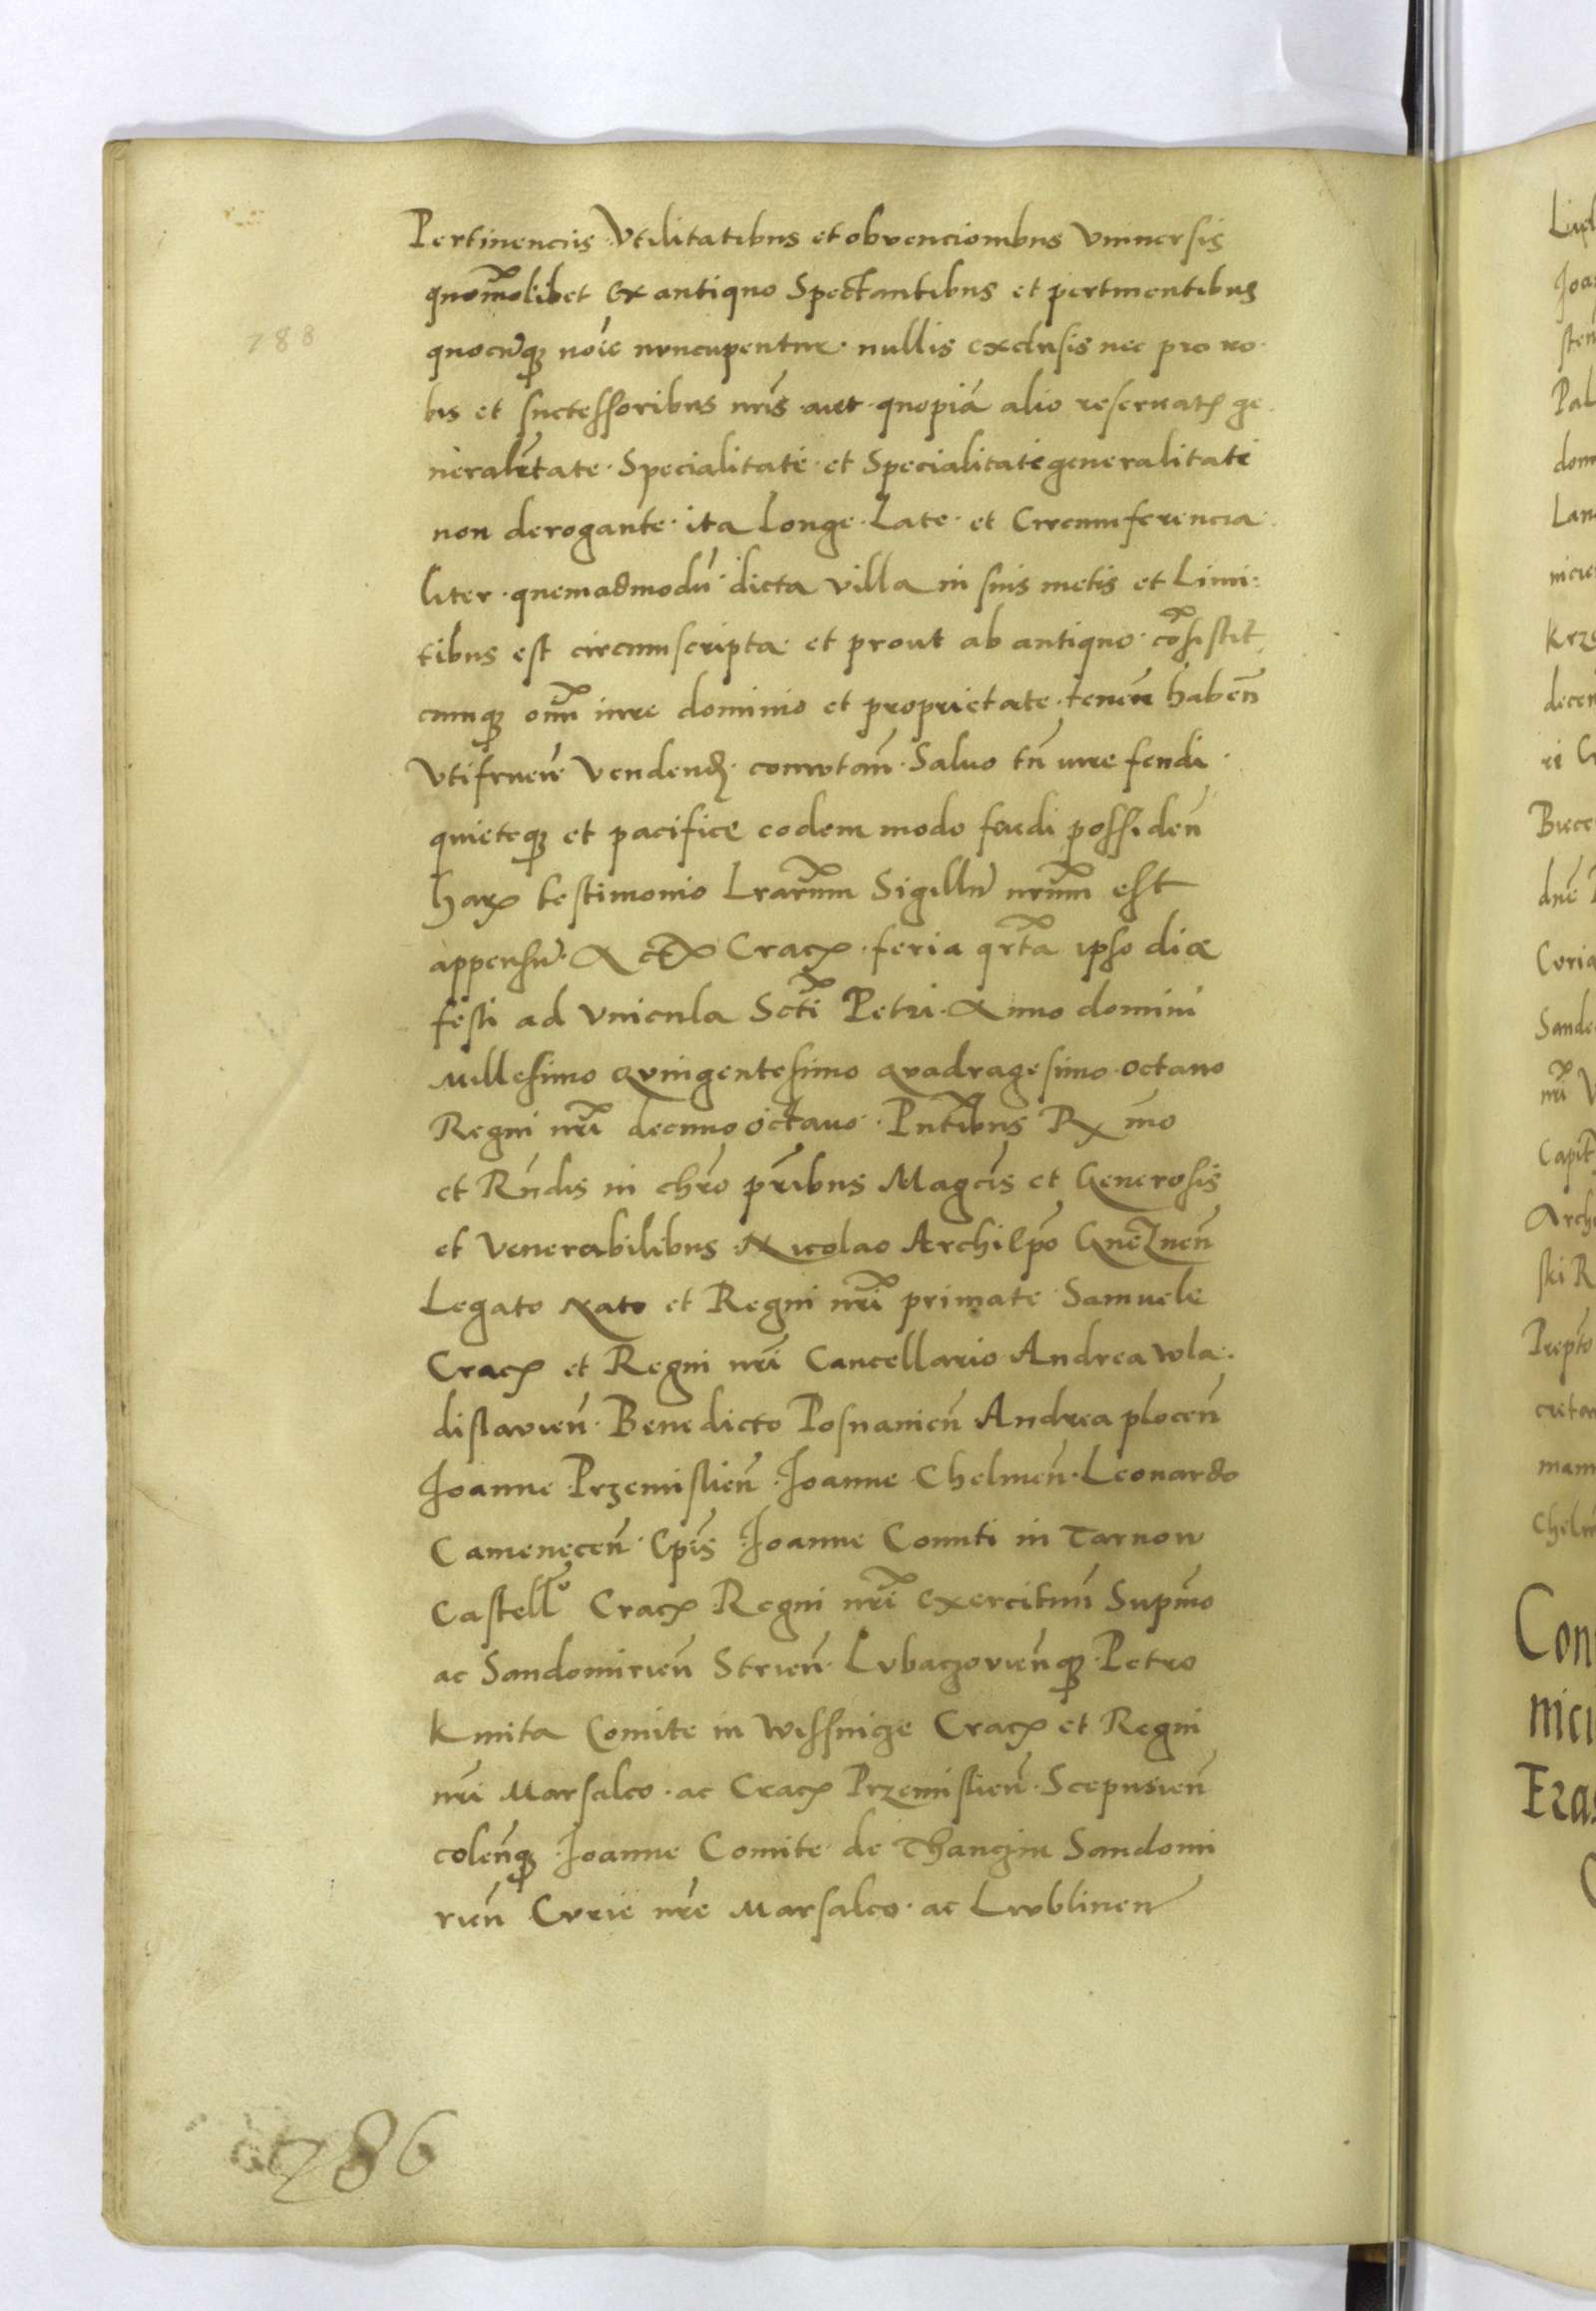 Pertinenciis Vtilitatibus et obvencionibus Vniuersis
quom̃olibet Ex antiquo Spectantibus et pertinentibus
quocũq; nõie nuncupentur nullis exclusis nec pro no
bis et successoribus nr̃is aut quopiã alio reseruatꝫ ge
neralitate Specialitati et Specialitate generalitati
non derogante ita Longe Late et Circumferencia
liter quemadmodũ dicta villa in suis metis et Limi
tibus est circumscripta et prout ab antiquo cõsistit
cumq; om̃i iure dominio et proprietate teneñ habeñ
Vtifrueñ Vendenď comutañ Saluo tñ iure feudi
quieteq; et pacifice eodem modo feudi possideñ
Harꝫ testimonio Lrarum̃ Sigillũ nrum̃ est
appensũ Act̃ Cracꝫ feria qrta ipso die
festi ad Vincula Scti Petri Anno domini
Millesimo Quingentesimo Quadragesimo octauo
Regni nr̃i decimo octauo Pñtibus Rx mo
et Rñdis in chr̃o pr̃ibus Magcis et Generosis
et Venerabilibus Nicolao Archiepõ Gneznen̄
Legato Nato et Regni nr̃i primate Samuele
Cracꝫ et Regni nr̃i Cancellario Andrea Wla
dislavien̄ Benedicto Posnanien̄ Andrea plocen̄
Joanne Przemislien̄ Joanne Chelmen̄ Leonardo
Camenecen̄ Epis Joanne Comiti in Tarnow
Castellº Cracꝫ Regni nr̃i exercitum̃ Supmo
ac Sandomirien̄ Strien̄ Lvbaczovien̄q; Petro
Kmita Comite in Wissnicze Cracꝫ et Regni
nr̃i Marsalco ac Cracꝫ Przemislien̄ Scepusien̄
colen̄q; Joanne Comite de Thanczin Sandomi
rien̄ Curie nr̃e Marsalco ac Lwblinen̄
288
286